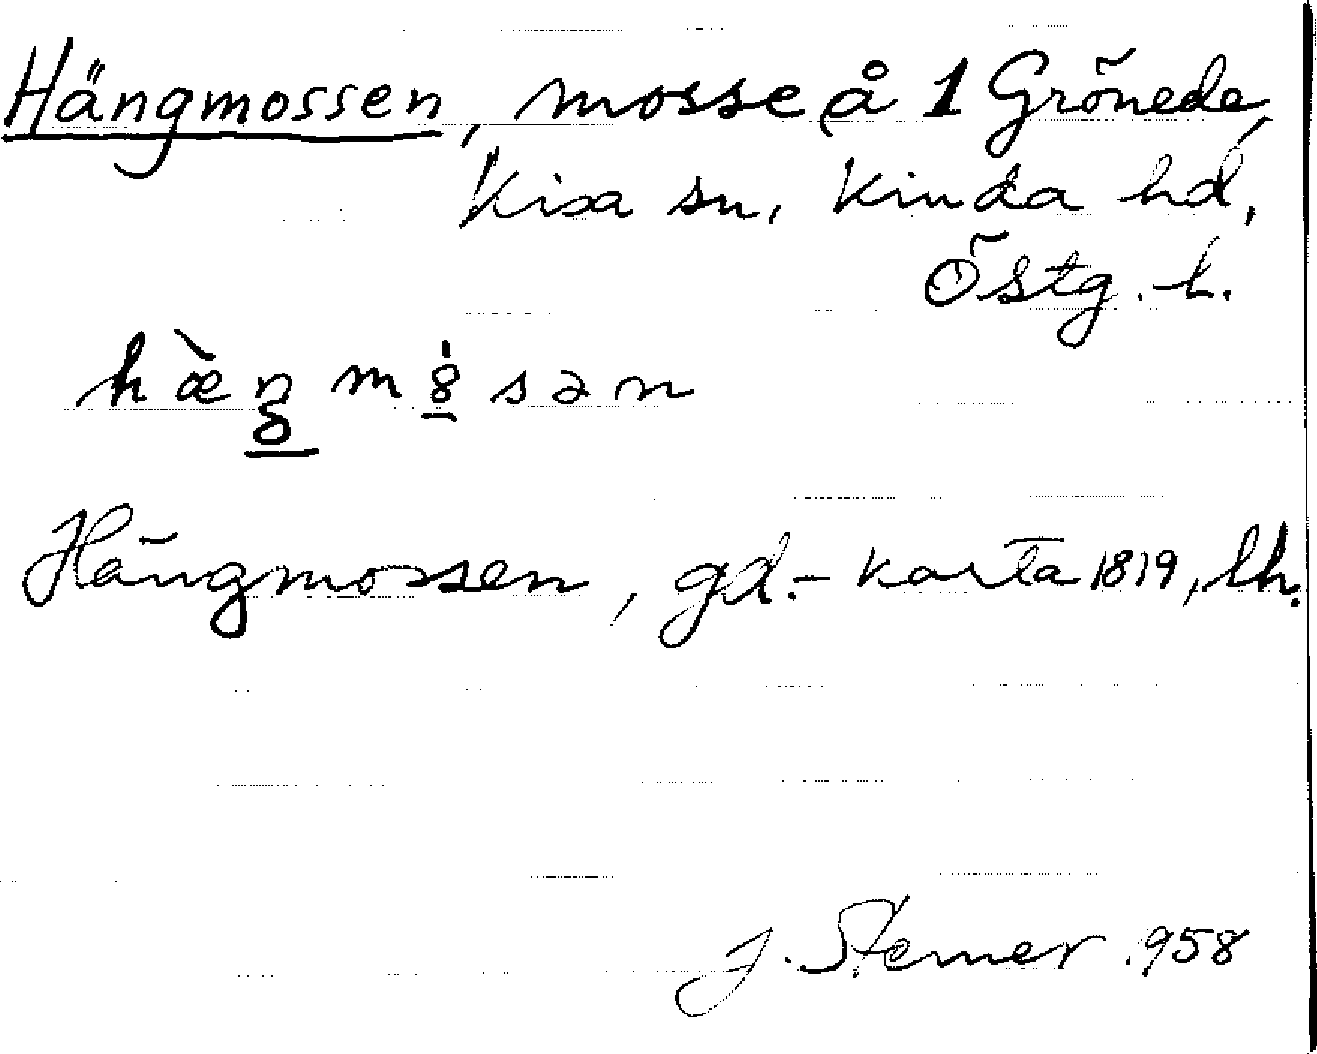 Hängmossen, mosse å 1 Grönede,
Kisa sn, Kinda hd,
Östg. l.
Hängmossen, gd.-karta 1819, lh.
J. Sterner 1958